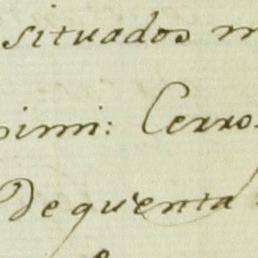 situados
Cerro
De quenta